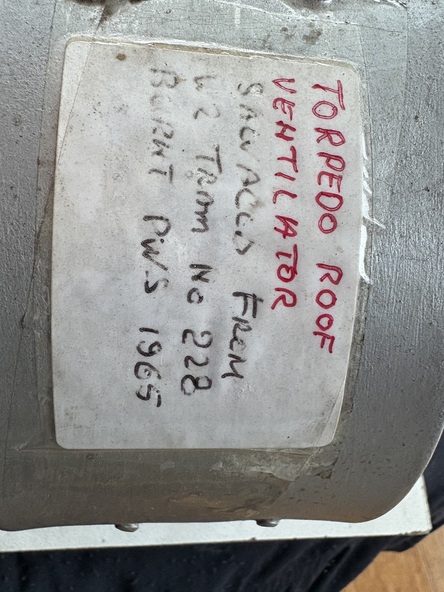 TORPEDO ROOF
VENTILATOR
SALVAGED FROM
W2 TRAM No 228
BURNT P.W.S 1965